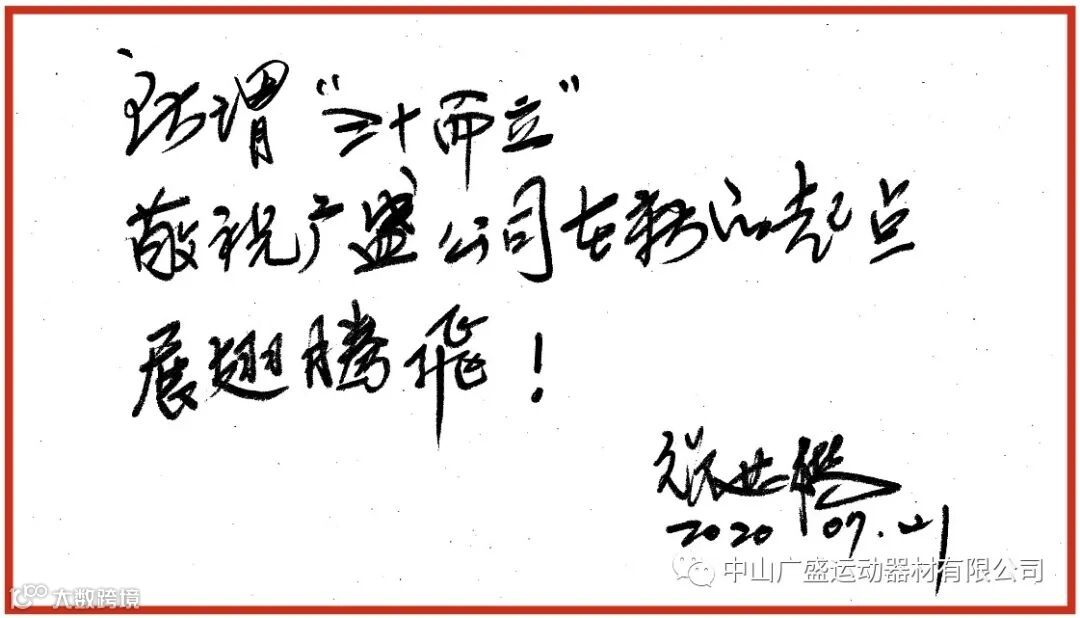 所谓“三十而立”
敬祝广盛公司在新的起点
展翅腾飞！
张世
2020 07.21
中山广盛运动器材有限公司
大数跨境